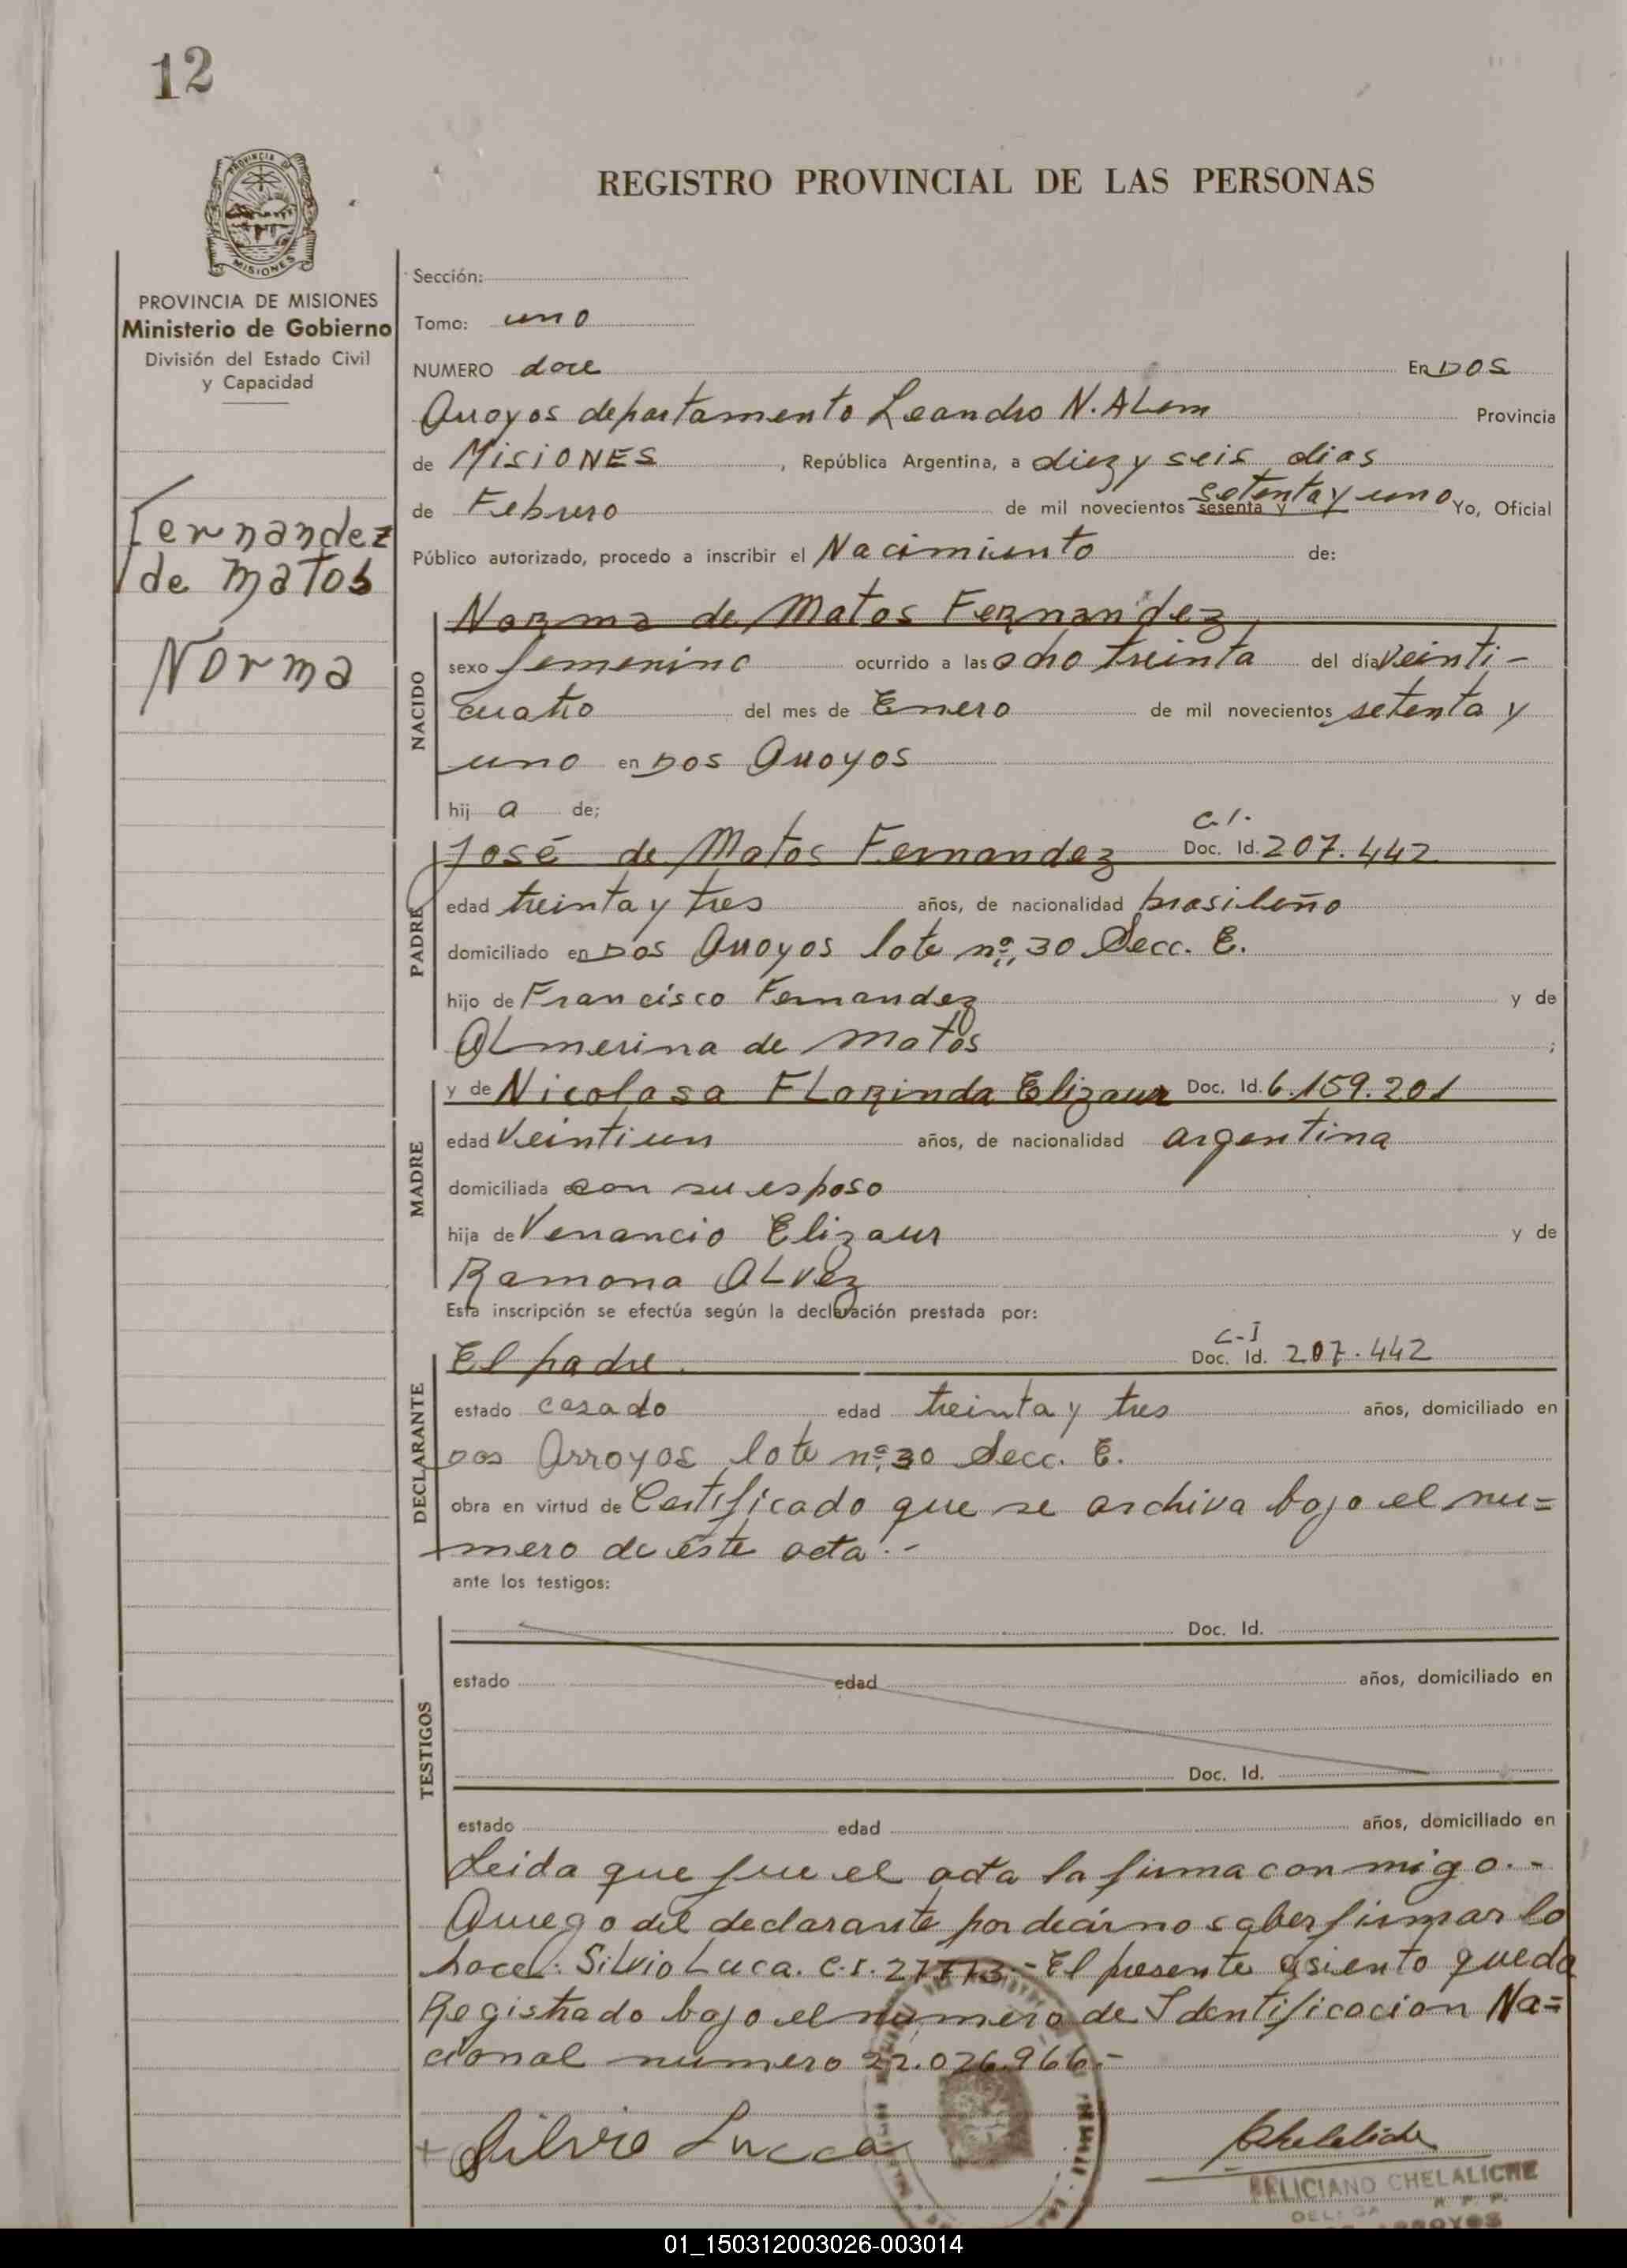 12
PROVINCIA DE
MISIONES
REGISTRO PROVINCIAL DE LAS PERSONAS
PROVINCIA DE MISIONES
Ministerio de Gobierno
División del Estado Civil
y Capacidad
Fernandez
de Matos
Norma
Sección:
Tomo: uno
NUMERO doce En DOS
Arroyos departamento Leandro N. ALem Provincia
de MISIONES, República Argentina, a diez y seis dias
de Febrero de mil novecientos sesenta y setenta y uno Yo, Oficial
Público autorizado, procedo a inscribir el Nacimiento de:
NACIDO
Norma de Matos Fernandez
sexo femenino ocurrido a las ocho treinta del día veinti-
cuatro del mes de Enero de mil novecientos setenta y
uno en DOS Arroyos
hij a de;
PADRE
José de Matos Fernandez C.I. Doc. Id. 207.442
edad treinta y tres años, de nacionalidad brasileño
domiciliado en Dos Arroyos lote nº 30 Secc. E.
hijo de Francisco Fernandez y de
ALmerina de Matos ;
MADRE
y de Nicolasa FLorinda Elizaur Doc. Id. 6.159.201
edad veintiun años, de nacionalidad argentina
domiciliada con su esposo
hija de Venancio Elizaur y de
Ramona ALvez
Esta inscripción se efectúa según la declaración prestada por:
DECLARANTE
El padre. C.I Doc. Id. 207.442
estado casado edad treinta y tres años, domiciliado en
Dos Arroyos lote nº 30 Secc. E.
obra en virtud de Certificado que se archiva bajo el nu=
mero de este acta.-
ante los testigos:
TESTIGOS
Doc. Id.
estado edad años, domiciliado en
Doc. Id.
estado edad años, domiciliado en
Leida que fue el acta la firma conmigo.-
Aruego del declarante por decir no saber firmar lo
hace: Silvio Luca. C.I. 27773.- El presente asiento queda
Registrado bajo el numero de Identificacion Na=
cional numero 22.026.966.-
Silvio Lucca
Chelaliche
FELICIANO CHELALICHE
ARROYOS
01_150312003026-003014